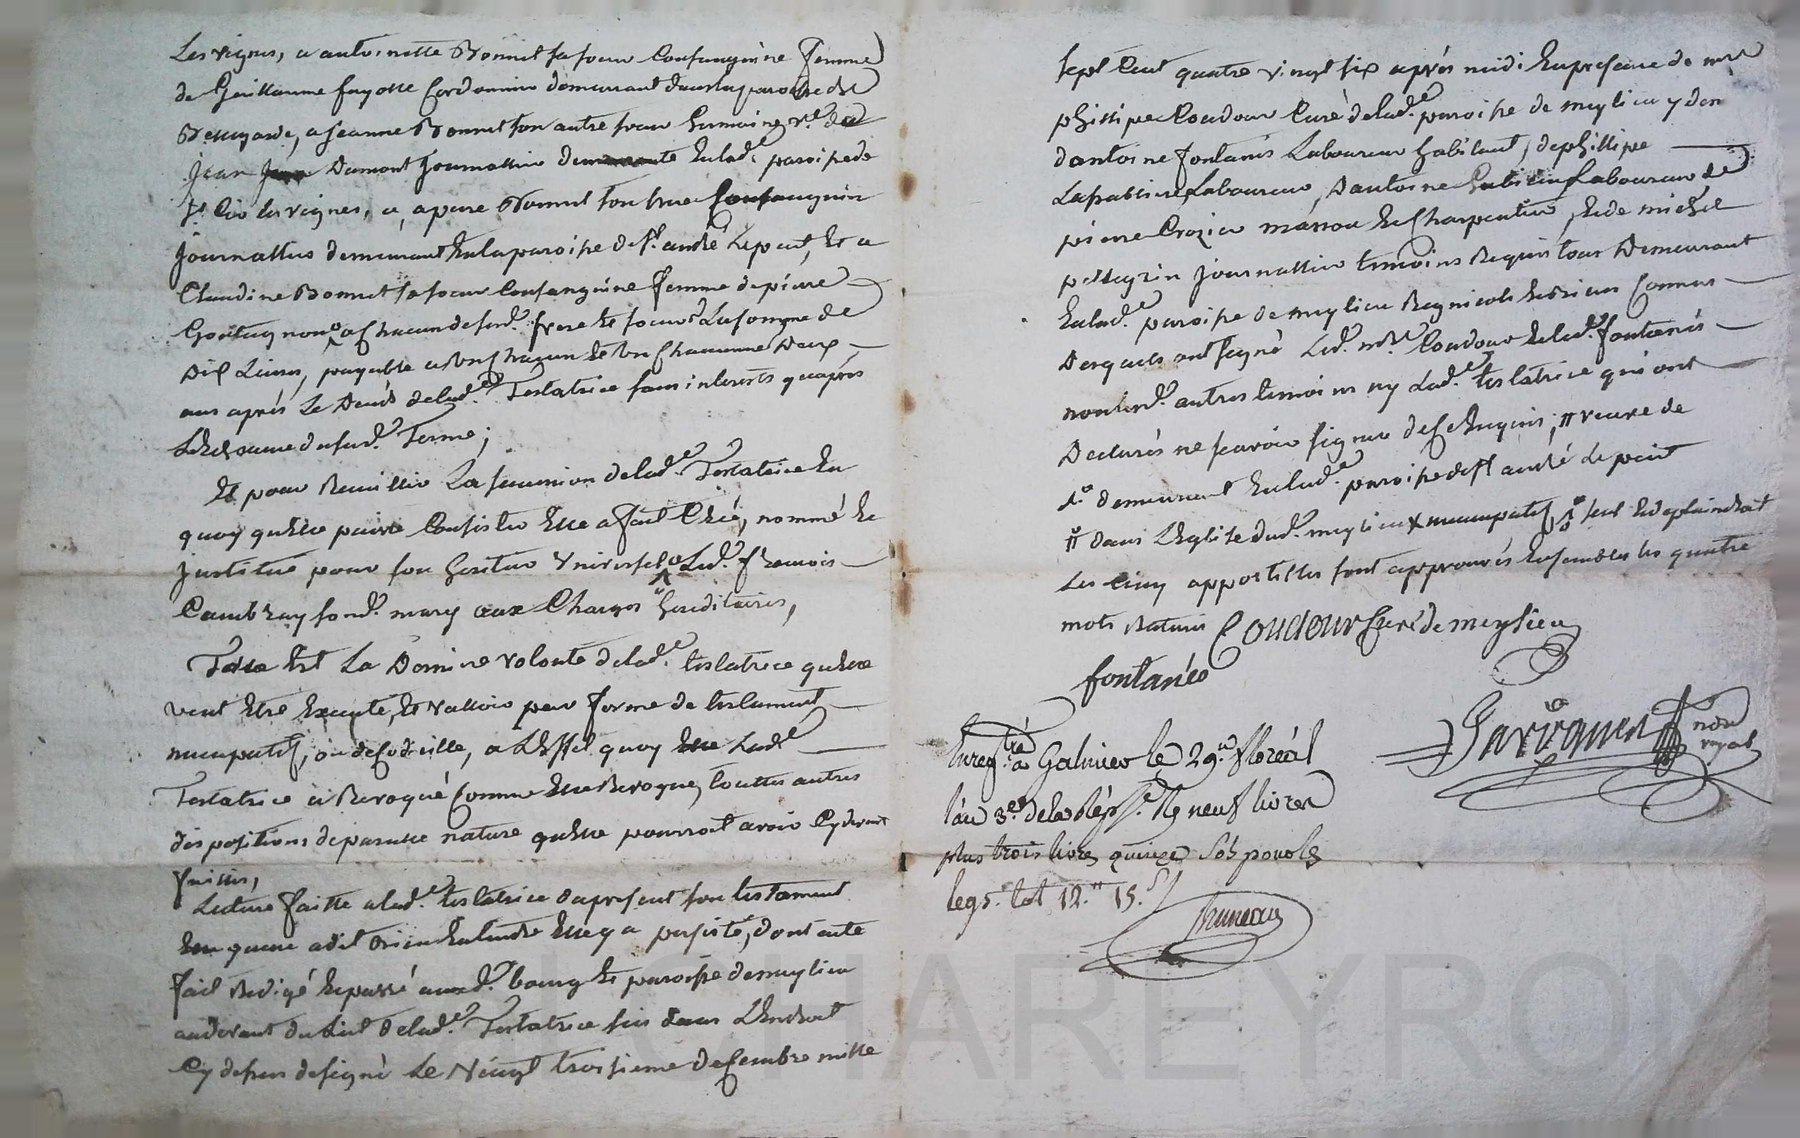 Les vignes, a antoinette Bonnet sa soeur Consanguine femme
de Guillaume fayolle Cordonnier demeurant dans la paroisse de
Bellegarde, a Jeanne Bonnet son autre soeur Germaine v.e de
Jean Dumont Journallier demeurante en lad.e paroisse de
St Cir les vignes, a, apiere Bonnet son frere Consanguin
Journallier demeurant en la paroisse de St andré Le puit, Et a
Claudine Bonnet sa soeur Consanguine femme de pierre
non a Chacun desd. frere Et soeurs La somme de
Dix Livres, payable a un Chacun Et un Chacunne Deux
ans après Le Deces de lad.e Testatrice sans interests qu'après
L'Echeance dusud. Terme ;
Et pour Recuillir La succession de lad.e Testatrice En
quoy qu'elle puisse Consister Elle a fait Créé, nommé Et
Institué pour son heritier Universel Led. francois
Cambray sond. mary aux Charges hereditaires,
Telle Est La Derniere volonté de lad.e testatrice qu'elle
veut Etre Executé, Et valloir par forme de testament
nuncupatif, ou de Codicille, a L'Effet quoy Lad.e
Testatrice a Revoqué Comme Elle Revoque, touttes autres
dispositions de pareille nature qu'elle pourroit avoir Cydevant
faittes,
Lecture faitte a lad.e testatrice du present son testament
qu'elle a dit Bien Entendre Elle y a persisté, dont acte
fait Redigé Et passé aud. bourg Et paroisse de meylieu
audevant du Lit de lad.e Testatrice sis dans L'Endroit
Cy dessus designé Le Vingt troisieme decembre mille
sept Cent quatre vingt six après midi En presence de mre
phillipe Coudour Curé de lad.e paroisse de meylieu y den
d'antoine fontanés Laboureur habitant, de phillipe
Laboureur, D'antoine Laboureur de
pierre Crozier Charpentier, Et de michel
pellegrin Journallier temoins Requis tous Demeurant
En lad.e paroisse de meylieu Regnicoles Connus
Desquels ont signé Led. mre Coudour Et led. fontanés
non lesd. autres temoins ny Lad.e testatrice qui ont
Declarés ne scavoir signer de ce Enquis, veuve de
demeurant En lad.e paroisse de st andré le puit
dans L'Eglise dud. meylieu nuncupatif,
Les Cinq appostilles sont approuvés Ensembles les quatre
mots Raturés Coudour Curé de meylieu
fontanés
Garriguen nore
royal
Enreg.tré a Galmier le 29.e floréal
l'an 3.e de la Rép.e Re neuf livres
plus trois livres quinze sols pour le
legs. tot 12.tt 15.s